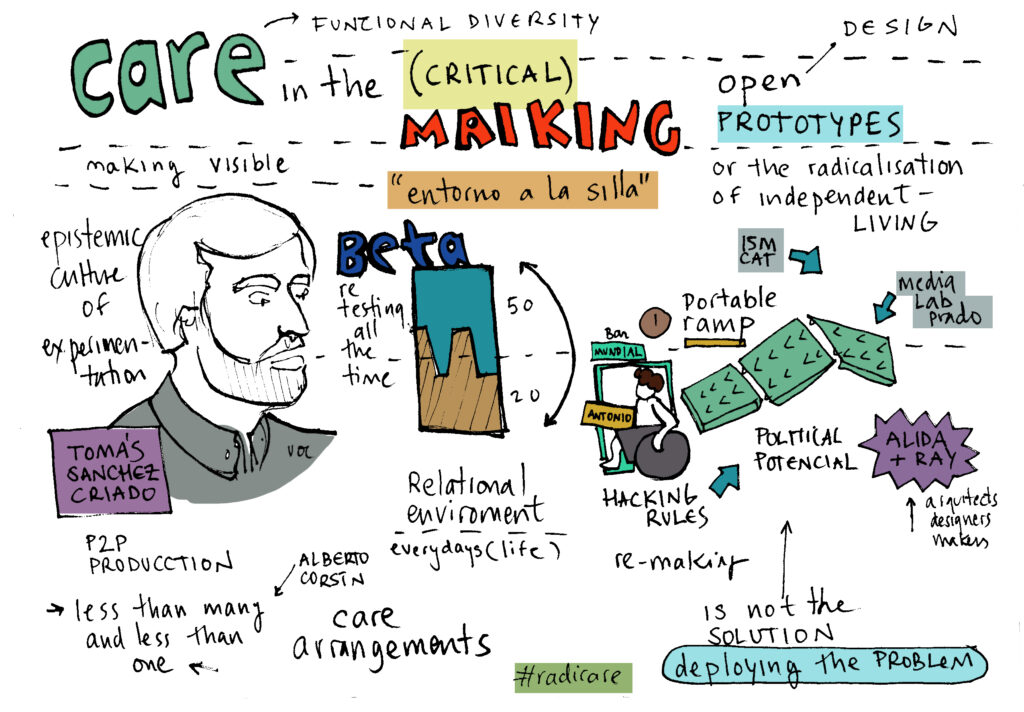 care
FUNCIONAL DIVERSITY
in the (CRITICAL)
MAIKING
DESIGN
open
PROTOTYPES
or the radicalisation
of independent-
LIVING
making visible
"entorno a la silla"
epistemic
culture
of
experimen-
tation
TOMÁS
SANCHEZ
CRIADO
VOL
Beta
re
testing
all
the
time
50
20
15M
CAT
media
Lab
prado
1
portable
ramp
Bar
MUNDIAL
ANTONIO
HACKING
RULES
POLITICAL
POTENCIAL
ALIDA
+ RAY
arquitects
designers
makers
Relational
enviroment
everydays (life)
P2P
PRODUCCTION
ALBERTO
CORSÍN
less than many
and less than
one
care
arrangements
re-making
is not the
SOLUTION
deploying the PROBLEM
#radicare